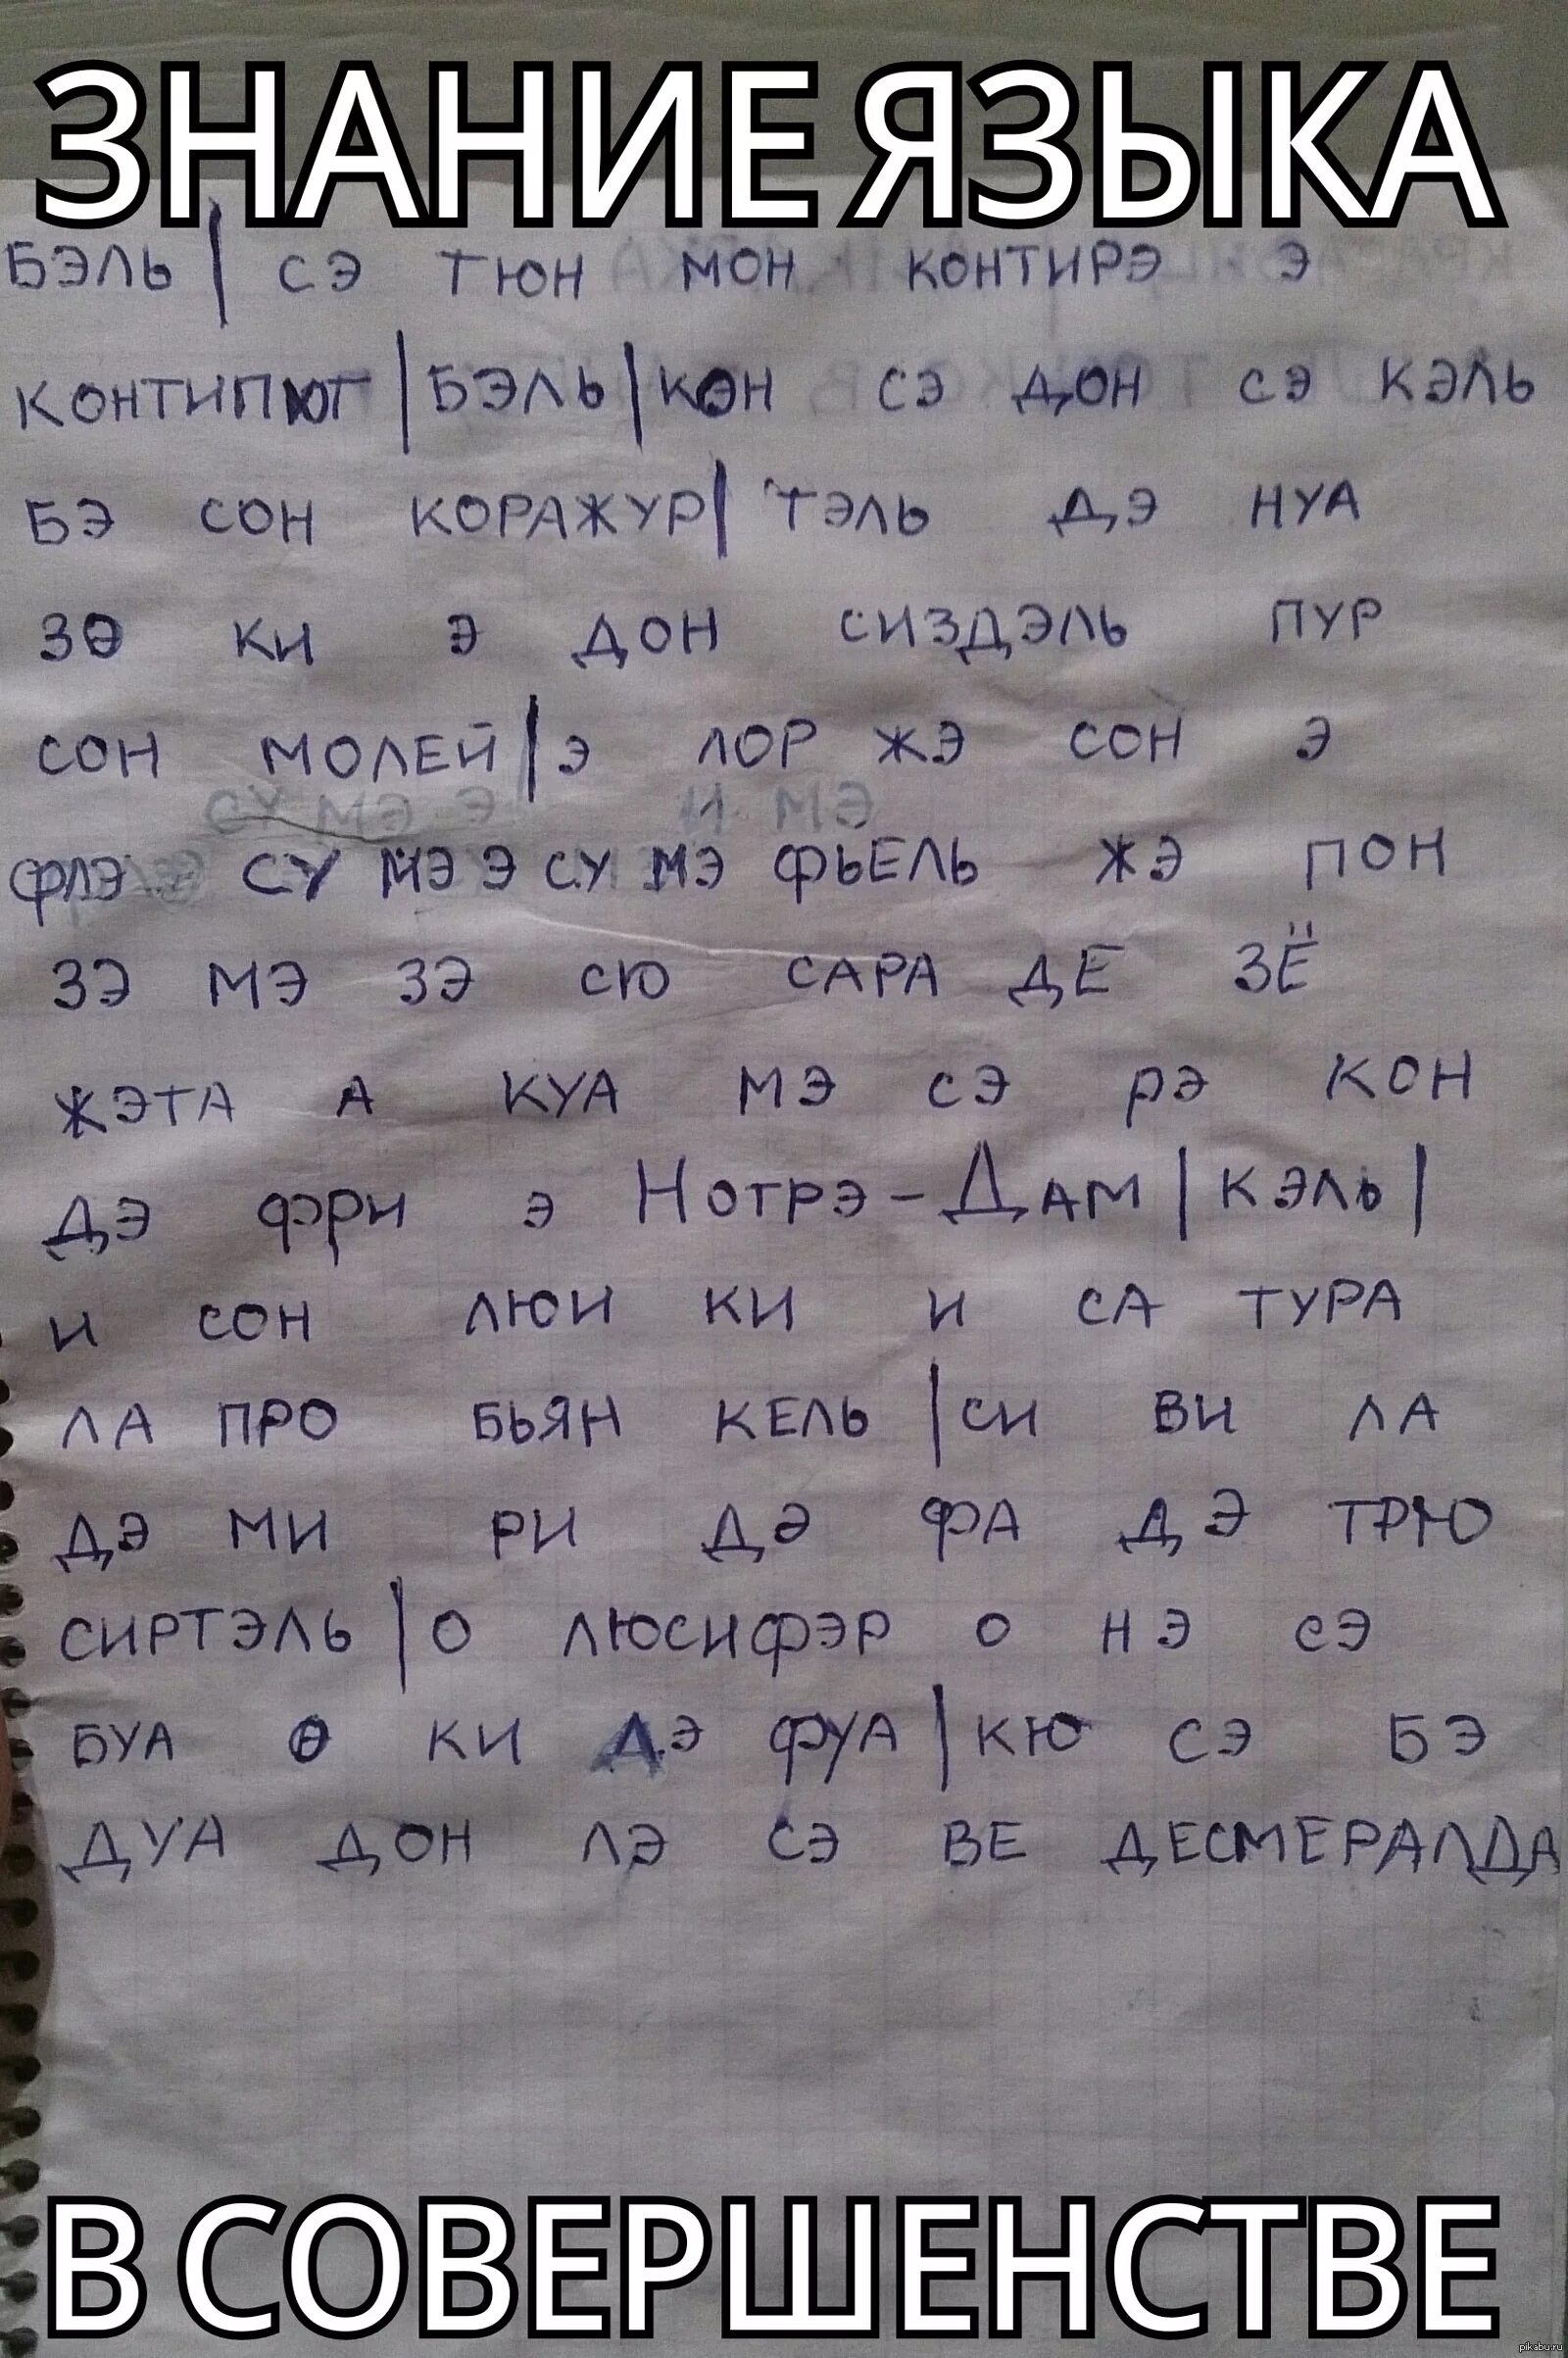 ЗНАНИЕ ЯЗЫКА
БЭЛЬ| СЭ ТЮН МОН КОНТИРЭ Э
КОНТИПЮТ |БЭЛЬ| КОН СЭ ДОН СЭ КЭЛЬ
БЭ СОН КОРАЖУР| ТЭЛЬ ДЭ НУА
ЗЭ КИ Э ДОН СИЗДЭЛЬ ПУР
СОН МОЛЕЙ| Э ЛОР ЖЭ СОН Э
ФЛЭ СУ МЭ Э СУ МЭ ФЬЕЛЬ ЖЭ ПОН
ЗЭ МЭ ЗЭ СЮ САРА ДЕ ЗЁ
ЖЭТА А КУА МЭ СЭ РЭ КОН
ДЭ ФРИ Э НОТРЭ-ДАМ| КЭЛЬ|
И СОН ЛЮИ КИ И СА ТУРА
ЛА ПРО БЬЯН КЕЛЬ |СИ ВИ ЛА
ДЭ МИ РИ ДЭ ФА ДЭ ТРЮ
СИРТЭЛЬ| О ЛЮСИФЭР О НЭ СЭ
БУА О КИ ДЭ ФУА| КЮ СЭ БЭ
ДУА ДОН ЛЭ СЭ ВЕ ДЕСМЕРАЛДА
В СОВЕРШЕНСТВЕ
pikabu.ru